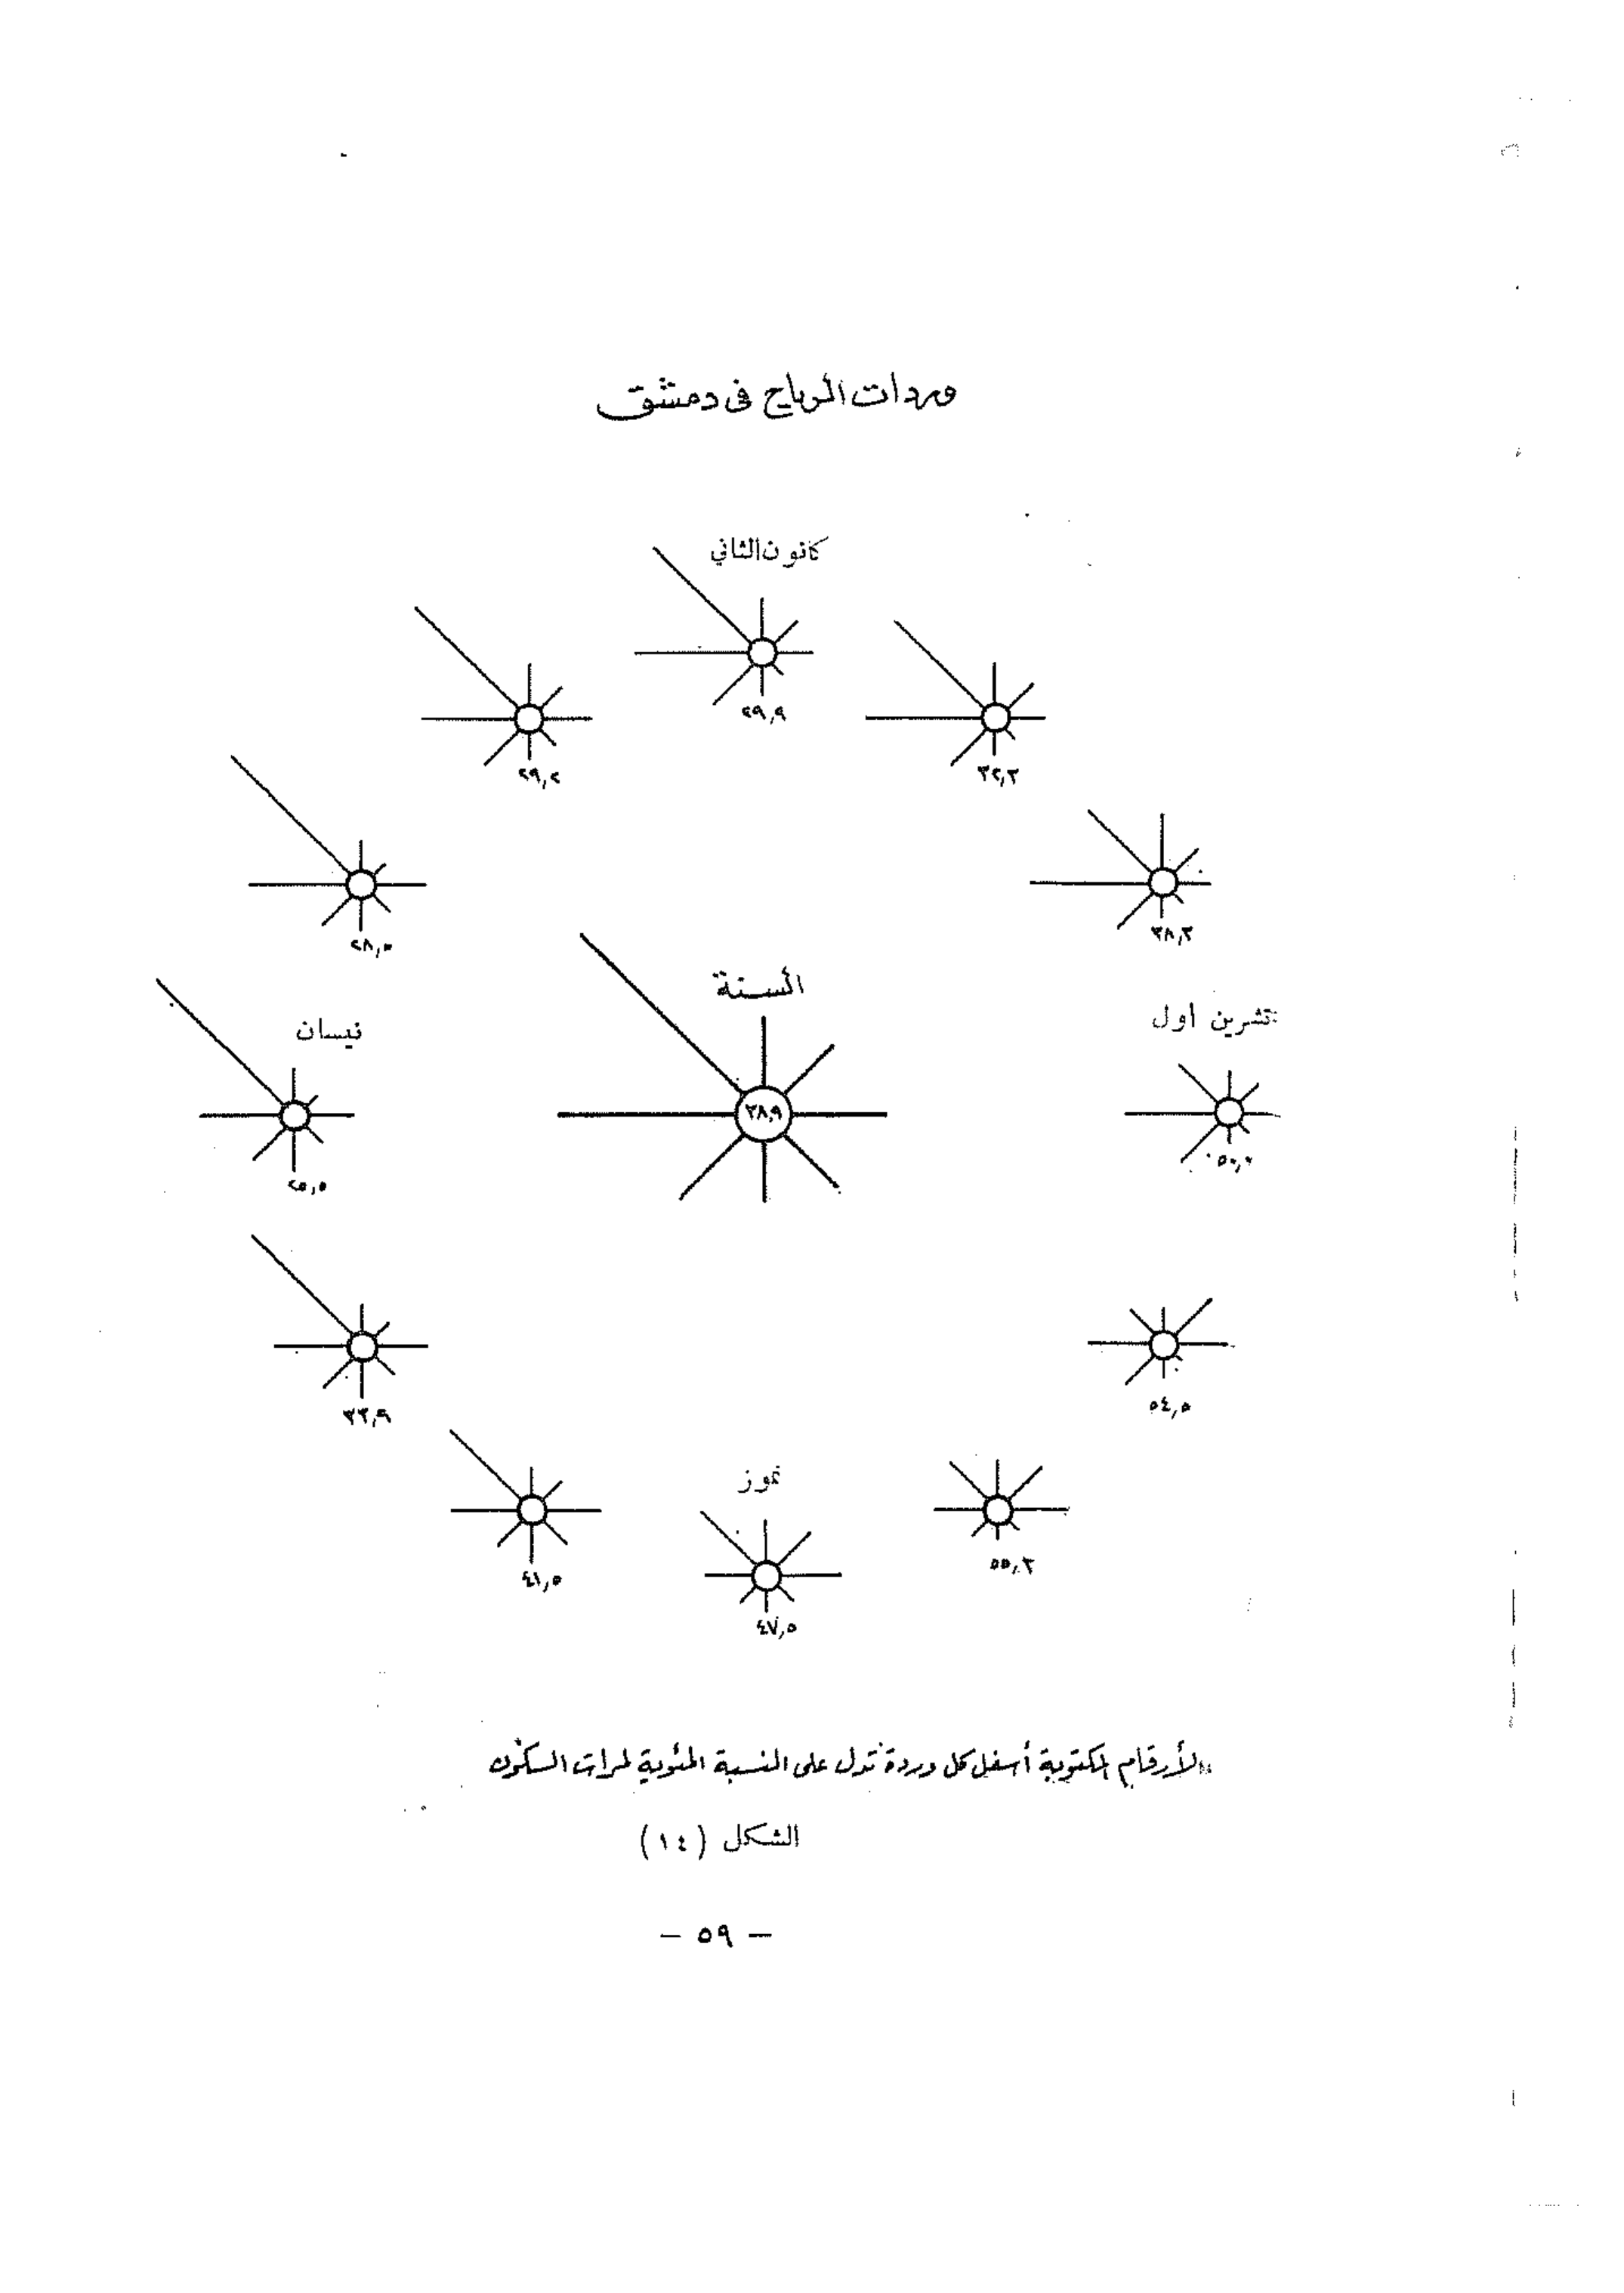 وردات الرياح في دمشق
كانون الثاني
٢٩,٩
٢٩,٢
٣٢,٣
٢٨,٥
٣٨,٣
السنة
٣٨,٩
تشرين اول
نيسان
٢٥,٥
٣٣,٩
٥٤,٥
تموز
٤١,٥
٥٥,٣
٤٧,٥
الأرقام المكتوبة أسفل كل وردة تدل على النسبة المئوية لمرات السكون
الشكل (١٤)
— ٥٩ —